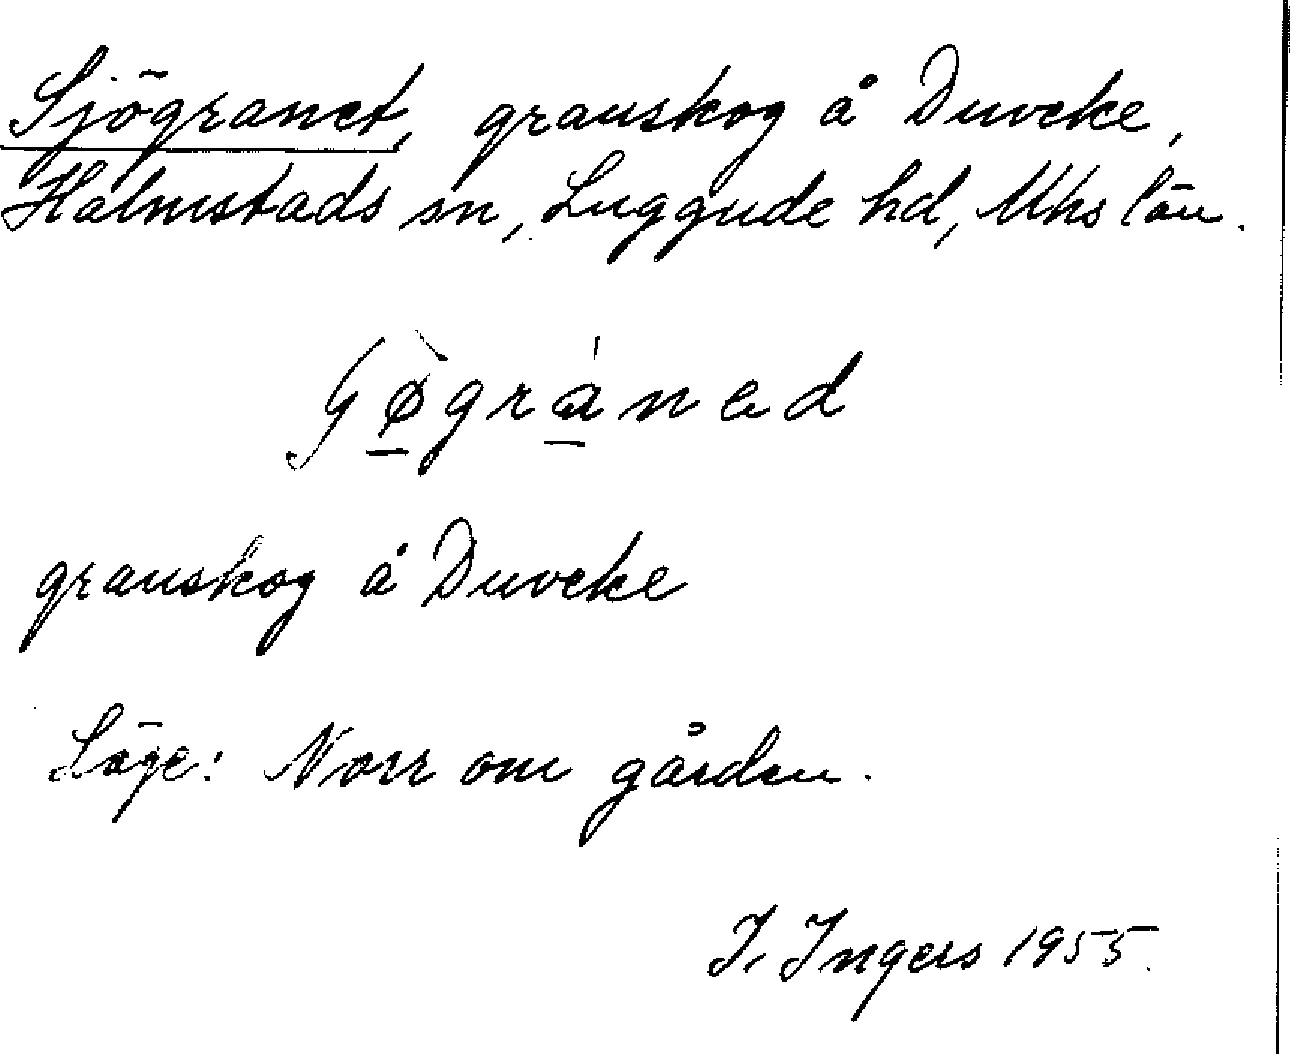 Sjögranet, granskog å Duveke,
Halmstads sn, Luggude hd, Mhs län.
granskog å Duveke
Läge: Norr om gården.
I. Ingers 1955.